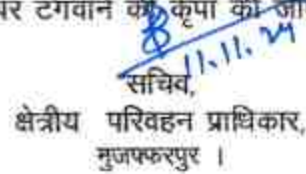 पर टंगवाने की कृपा की जा
11.11.24
सचिव,
क्षेत्रीय परिवहन प्राधिकार,
मुजफ्फरपुर ।